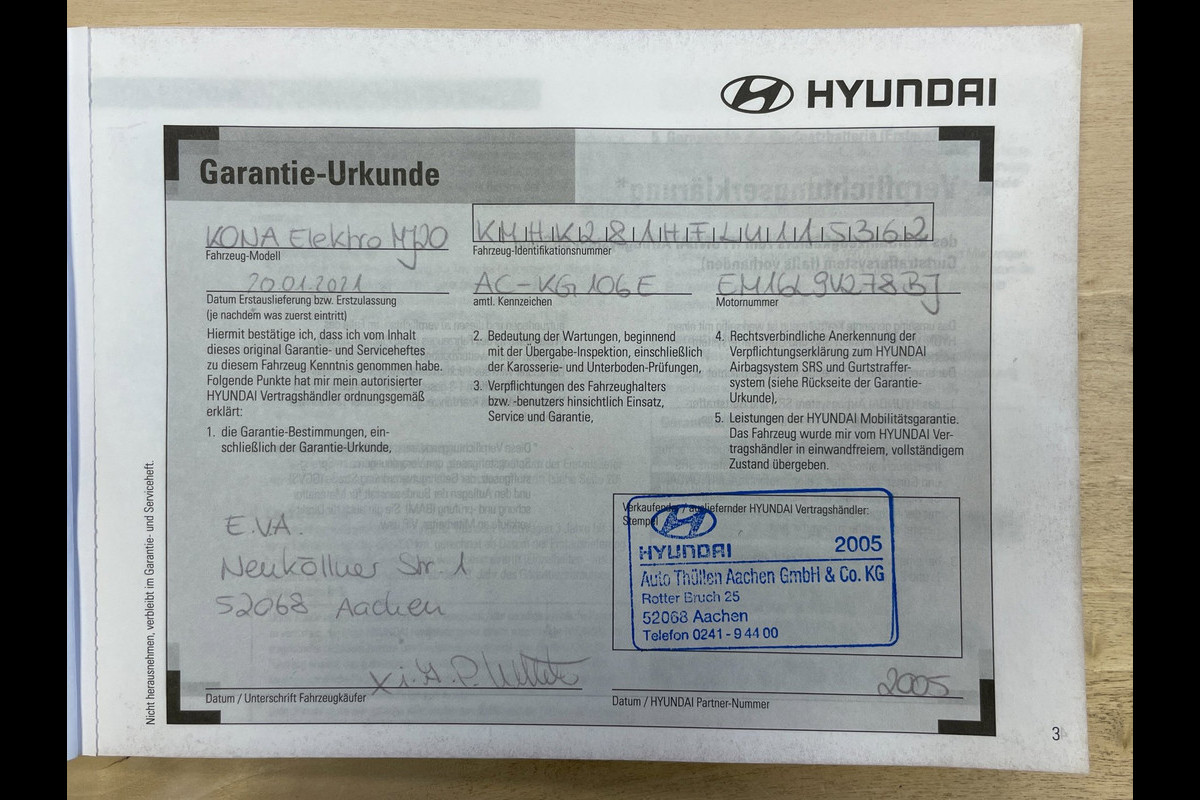 HYUNDAI
Garantie-Urkunde
KONA Elektro MJ20
Fahrzeug-Modell
KMHK281HFLU115362
Fahrzeug-Identifikationsnummer
20.01.2021
Datum Erstauslieferung bzw. Erstzulassung
(je nachdem was zuerst eintritt)
AC-KG 106 E
amtl. Kennzeichen
EM16L9V278BJ
Motornummer
Hiermit bestätige ich, dass ich vom Inhalt
dieses original Garantie- und Serviceheftes
zu diesem Fahrzeug Kenntnis genommen habe.
Folgende Punkte hat mir mein autorisierter
HYUNDAI Vertragshändler ordnungsgemäß
erklärt:
1. die Garantie-Bestimmungen, ein-
schließlich der Garantie-Urkunde,
2. Bedeutung der Wartungen, beginnend
mit der Übergabe-Inspektion, einschließlich
der Karosserie- und Unterboden-Prüfungen,
3. Verpflichtungen des Fahrzeughalters
bzw. -benutzers hinsichtlich Einsatz,
Service und Garantie,
4. Rechtsverbindliche Anerkennung der
Verpflichtungserklärung zum HYUNDAI
Airbagsystem SRS und Gurtstraffer-
system (siehe Rückseite der Garantie-
Urkunde),
5. Leistungen der HYUNDAI Mobilitätsgarantie.
Das Fahrzeug wurde mir vom HYUNDAI Ver-
tragshändler in einwandfreiem, vollständigem
Zustand übergeben.
E.V.A.
Neuköllner Str. 1
52068 Aachen
Datum / Unterschrift Fahrzeugkäufer
Verkaufender / ausliefernder HYUNDAI Vertragshändler:
Stempel
HYUNDAI 2005
Auto Thüllen Aachen GmbH & Co. KG
Rotter Bruch 25
52068 Aachen
Telefon 0241 - 9 44 00
2005
Datum / HYUNDAI Partner-Nummer
Nicht herausnehmen, verbleibt im Garantie- und Serviceheft.
3